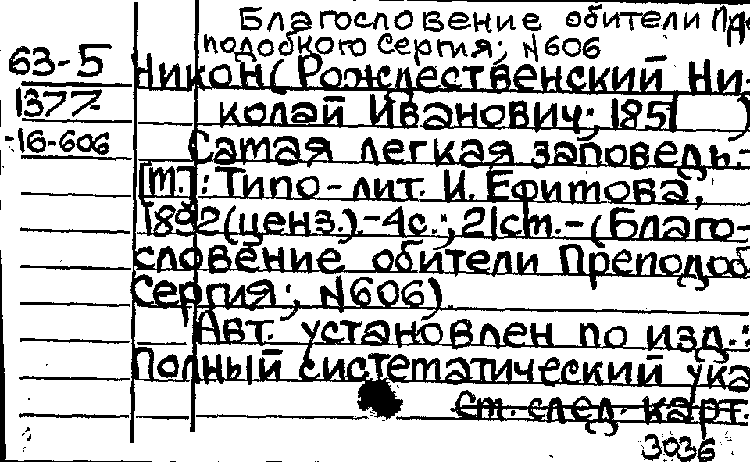 Благословение обители Пр
подобного Сергия; N606
63-5
Никон (Рождественский Ни-
1377
колай Иванович; 1851 )
-16-606
Самая легкая заповедь.-
[М.]: Типо-лит. И. Ефимова,
1892 (ценз.).-4с.; 21см.-(Благо-
словение обители Преподоб
Сергия; N606).
Авт. установлен по изд.:
Полный систематический ука
См. след. карт.
3036